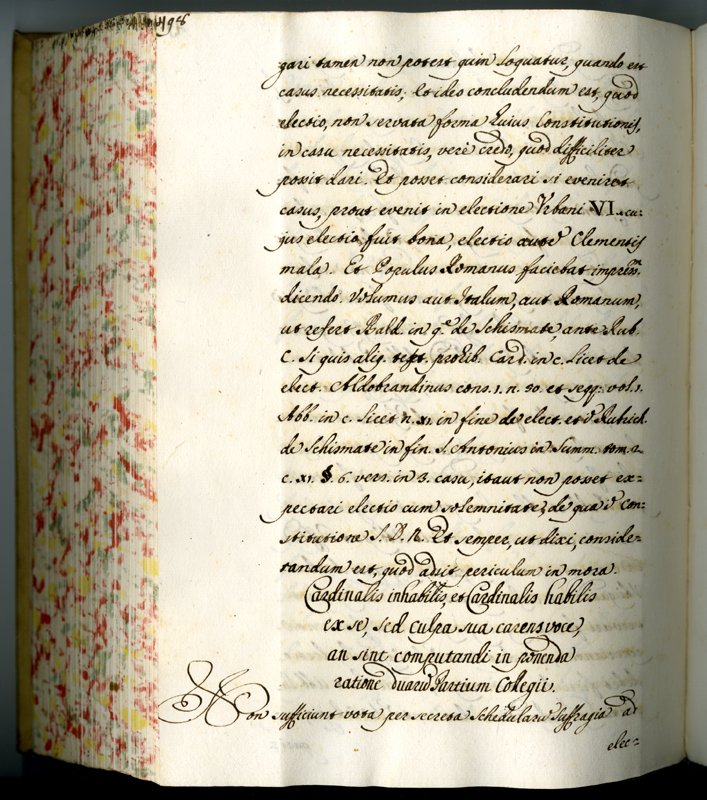 498
gari tamen non potest quin loquatur, quando est
casus necessitatis; Et ideo concludendum est, quod
electio, non servata forma huius Constitutionis,
in casu necessitatis, verè credo, quod difficiliter
possit dari. Et posset considerari si eveniret
casus, prout evenit in electione Vrbani VI. cu-
jus electio fuit bona, electio autẽ Clementis
mala. Et Populus Romanus faciebat impress.m
dicendo. Volumus aut Italum, aut Romanum,
ut refert Bald. in q.e de Schismate, ante Rub.
C. Si quis aliq. test. prohib. Card. in c. licet de
elect. Aldobrandinus cons. 1. n. 30. et seqq. vol. 1.
Abb. in c. licet n. XI. in fine de elect. et ĩ Rubrich.
de Schismate in fin. S. Antonius in Summ. tom. 2.
c. XI. §. 6. vers. in 3. casu, itaut non posset ex=
pectari electio cum solemnitate, de qua ĩ Con=
stitutione S. D. N. Et semper, ut dixi, conside=
randum est, quod adsit periculum in mora.
Cardinalis inhabilis, et Cardinalis habilis
ex se, sed culpa sua carens voce,
an sint computandi in ponenda
ratione duarũ Partium Collegii.
Non sufficiunt vota per secreta Schedularũ Suffragia ad
elec=